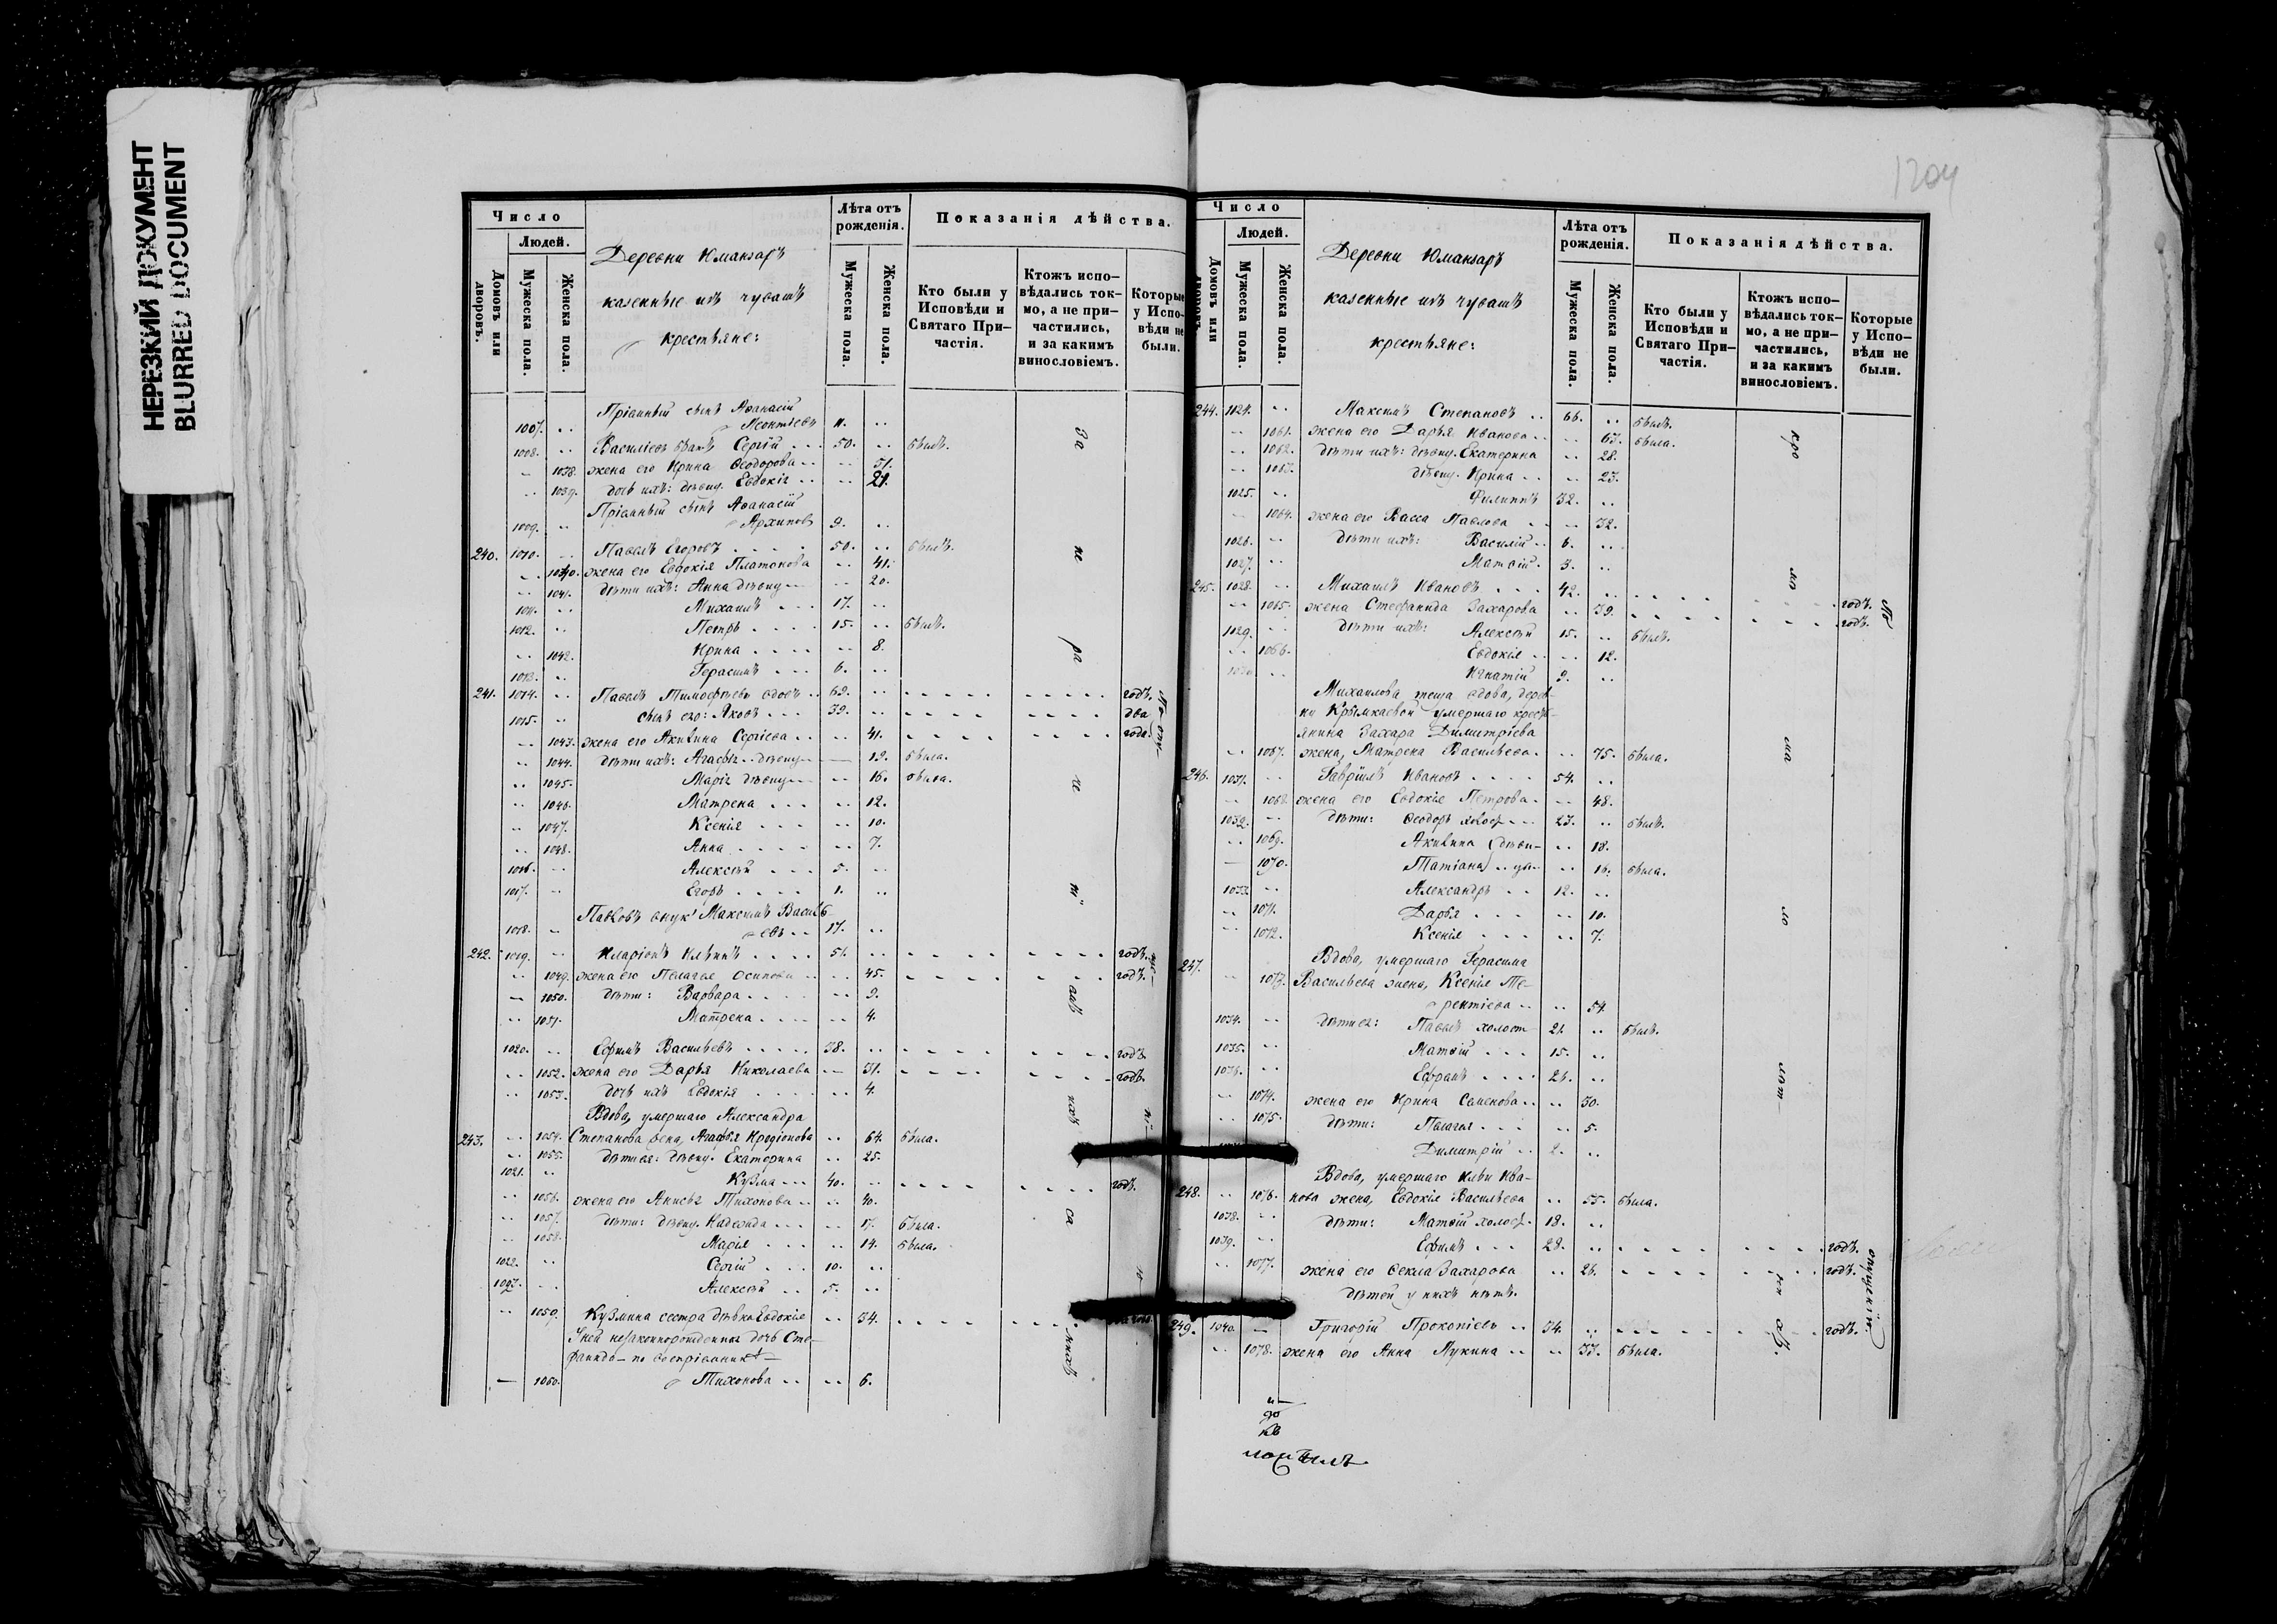 НЕРЕЗКИЙ ДОКУМЕНТ
BLURRED DOCUMENT
1204
Число
Людей.
Домовъ или дворовъ.
Мужеска пола.
Женска пола.
Деревни Юманзаръ
казенные изъ чувашъ
крестьяне:
Лѣта отъ рожденія.
Мужеска пола.
Женска пола.
Показанія дѣйства.
Кто были у Исповѣди и Святаго При-частія.
Ктожъ испо-вѣдались ток-мо, а не при-частились, и за какимъ винословіемъ.
Которые у Испо-вѣди не были.
Пріемный сынъ Аѳанасій
1007. Леонтьевъ 11.
1008. Васильевъ братъ Сергій 50. былъ.
1038. жена его Ирина Ѳеодорова 51.
1039. дочь ихъ: дѣвиц. Евдокія 21.
Пріемный сынъ Аѳанасій
1009. Архиповъ 9.
240. 1010. Павелъ Егоровъ 50. былъ.
1040. жена его Евдокія Платонова 41.
1041. дѣти ихъ: Анна дѣвиц. 20.
1011. Михаилъ 17.
1012. Петръ 15. былъ.
1042. Ирина 8.
1013. Герасимъ 6.
241. 1014. Павелъ Тимофѣевъ вдовъ 69. годъ.
1015. сынъ его: Яковъ 39. два
1043. жена его Акилина Сергіева 41. года.
1044. дѣти ихъ: Агафья дѣвиц. 19. была.
1045. Марія дѣвиц. 16. была.
1046. Матрена 12.
1047. Ксенія 10.
1048. Анна 7.
1016. Алексѣй 5.
1017. Егоръ 1.
Павловъ внукъ Максимъ Василь-
1018. евъ 17.
242. 1019. Иларіонъ Ильинъ 51. годъ.
1049. жена его Пелагея Осипова 45. годъ.
1050. дѣти: Варвара 9.
1051. Матрена 4.
1020. Ефимъ Васильевъ 38. годъ.
1052. жена его Дарья Николаева 31. годъ.
1053. дочь ихъ Евдокія 4.
Вдова, умершаго Александра
243. 1054. Степанова жена, Агафья Иродіонова 64. была.
1055. дѣти ея: дѣвиц. Екатерина 25.
1021. Кузма 40. годъ.
1056. жена его Анисья Тихонова 40.
1057. дѣти: дѣвиц. Надежда 17. была.
1058. Марія 14. была.
1022. Сергій 10.
1023. Алексѣй 5.
1059. Кузмина сестра дѣвка Евдокія 34.
У ней незаконнорожденная дочь Сте-
фанида по воспріемнику
1060. Тихонова 6.
Число
Людей.
Домовъ или дворовъ.
Мужеска пола.
Женска пола.
Деревни Юманзаръ
казенные изъ чувашъ
крестьяне:
Лѣта отъ рожденія.
Мужеска пола.
Женска пола.
Показанія дѣйства.
Кто были у Исповѣди и Святаго При-частія.
Ктожъ испо-вѣдались ток-мо, а не при-частились, и за какимъ винословіемъ.
Которые у Испо-вѣди не были.
244. 1024. Максимъ Степановъ 66. былъ.
1061. жена его Дарья Иванова 63. была.
1062. дѣти ихъ: дѣвиц. Екатерина 28.
1063. дѣвиц. Ирина 23.
1025. Филиппъ 32.
1064. жена его Васса Павлова 32.
1026. дѣти ихъ: Василій 6.
1027. Матѳій 3.
245. 1028. Михаилъ Ивановъ 42. годъ.
1065. жена Стефанида Захарова 39. годъ.
1029. дѣти ихъ: Алексѣй 15. былъ.
1066. Евдокія 12.
1030. Игнатій 9.
Михаилова теща вдова, дерев-
ни Крымкаевой умершаго кресть-
янина Захара Димитріева
1067. жена, Матрена Васильева 75. была.
246. 1031. Гавріилъ Ивановъ 54.
1068. жена его Евдокія Петрова 48.
1032. дѣти: Ѳеодоръ холост. 23. былъ.
1069. Акилина (дѣви- 18.
1070. Татіана) цы 16. была.
1033. Александръ 12.
1071. Дарья 10.
1072. Ксенія 7.
Вдова, умершаго Герасима
247. 1073. Васильева жена, Ксенія Те-
рентіева 54.
1034. дѣти ея: Павелъ холост 21. былъ.
1035. Матѳій 15.
1036. Ефремъ 26.
1074. жена его Ирина Семенова 30.
1075. дѣти: Пелагея 5.
Димитрій 2.
Вдова, умершаго Ильи Ива-
248. 1076. нова жена, Евдокія Васильева 55. была.
1038. дѣти: Матѳій холост. 18.
1039. Ефимъ 28. годъ.
1077. жена его Ѳекла Захарова 26. годъ.
дѣтей у нихъ нѣтъ.
249. 1040. Григорій Прокопіевъ 34. годъ.
1078. жена его Анна Лукина 33. была.
опущенію